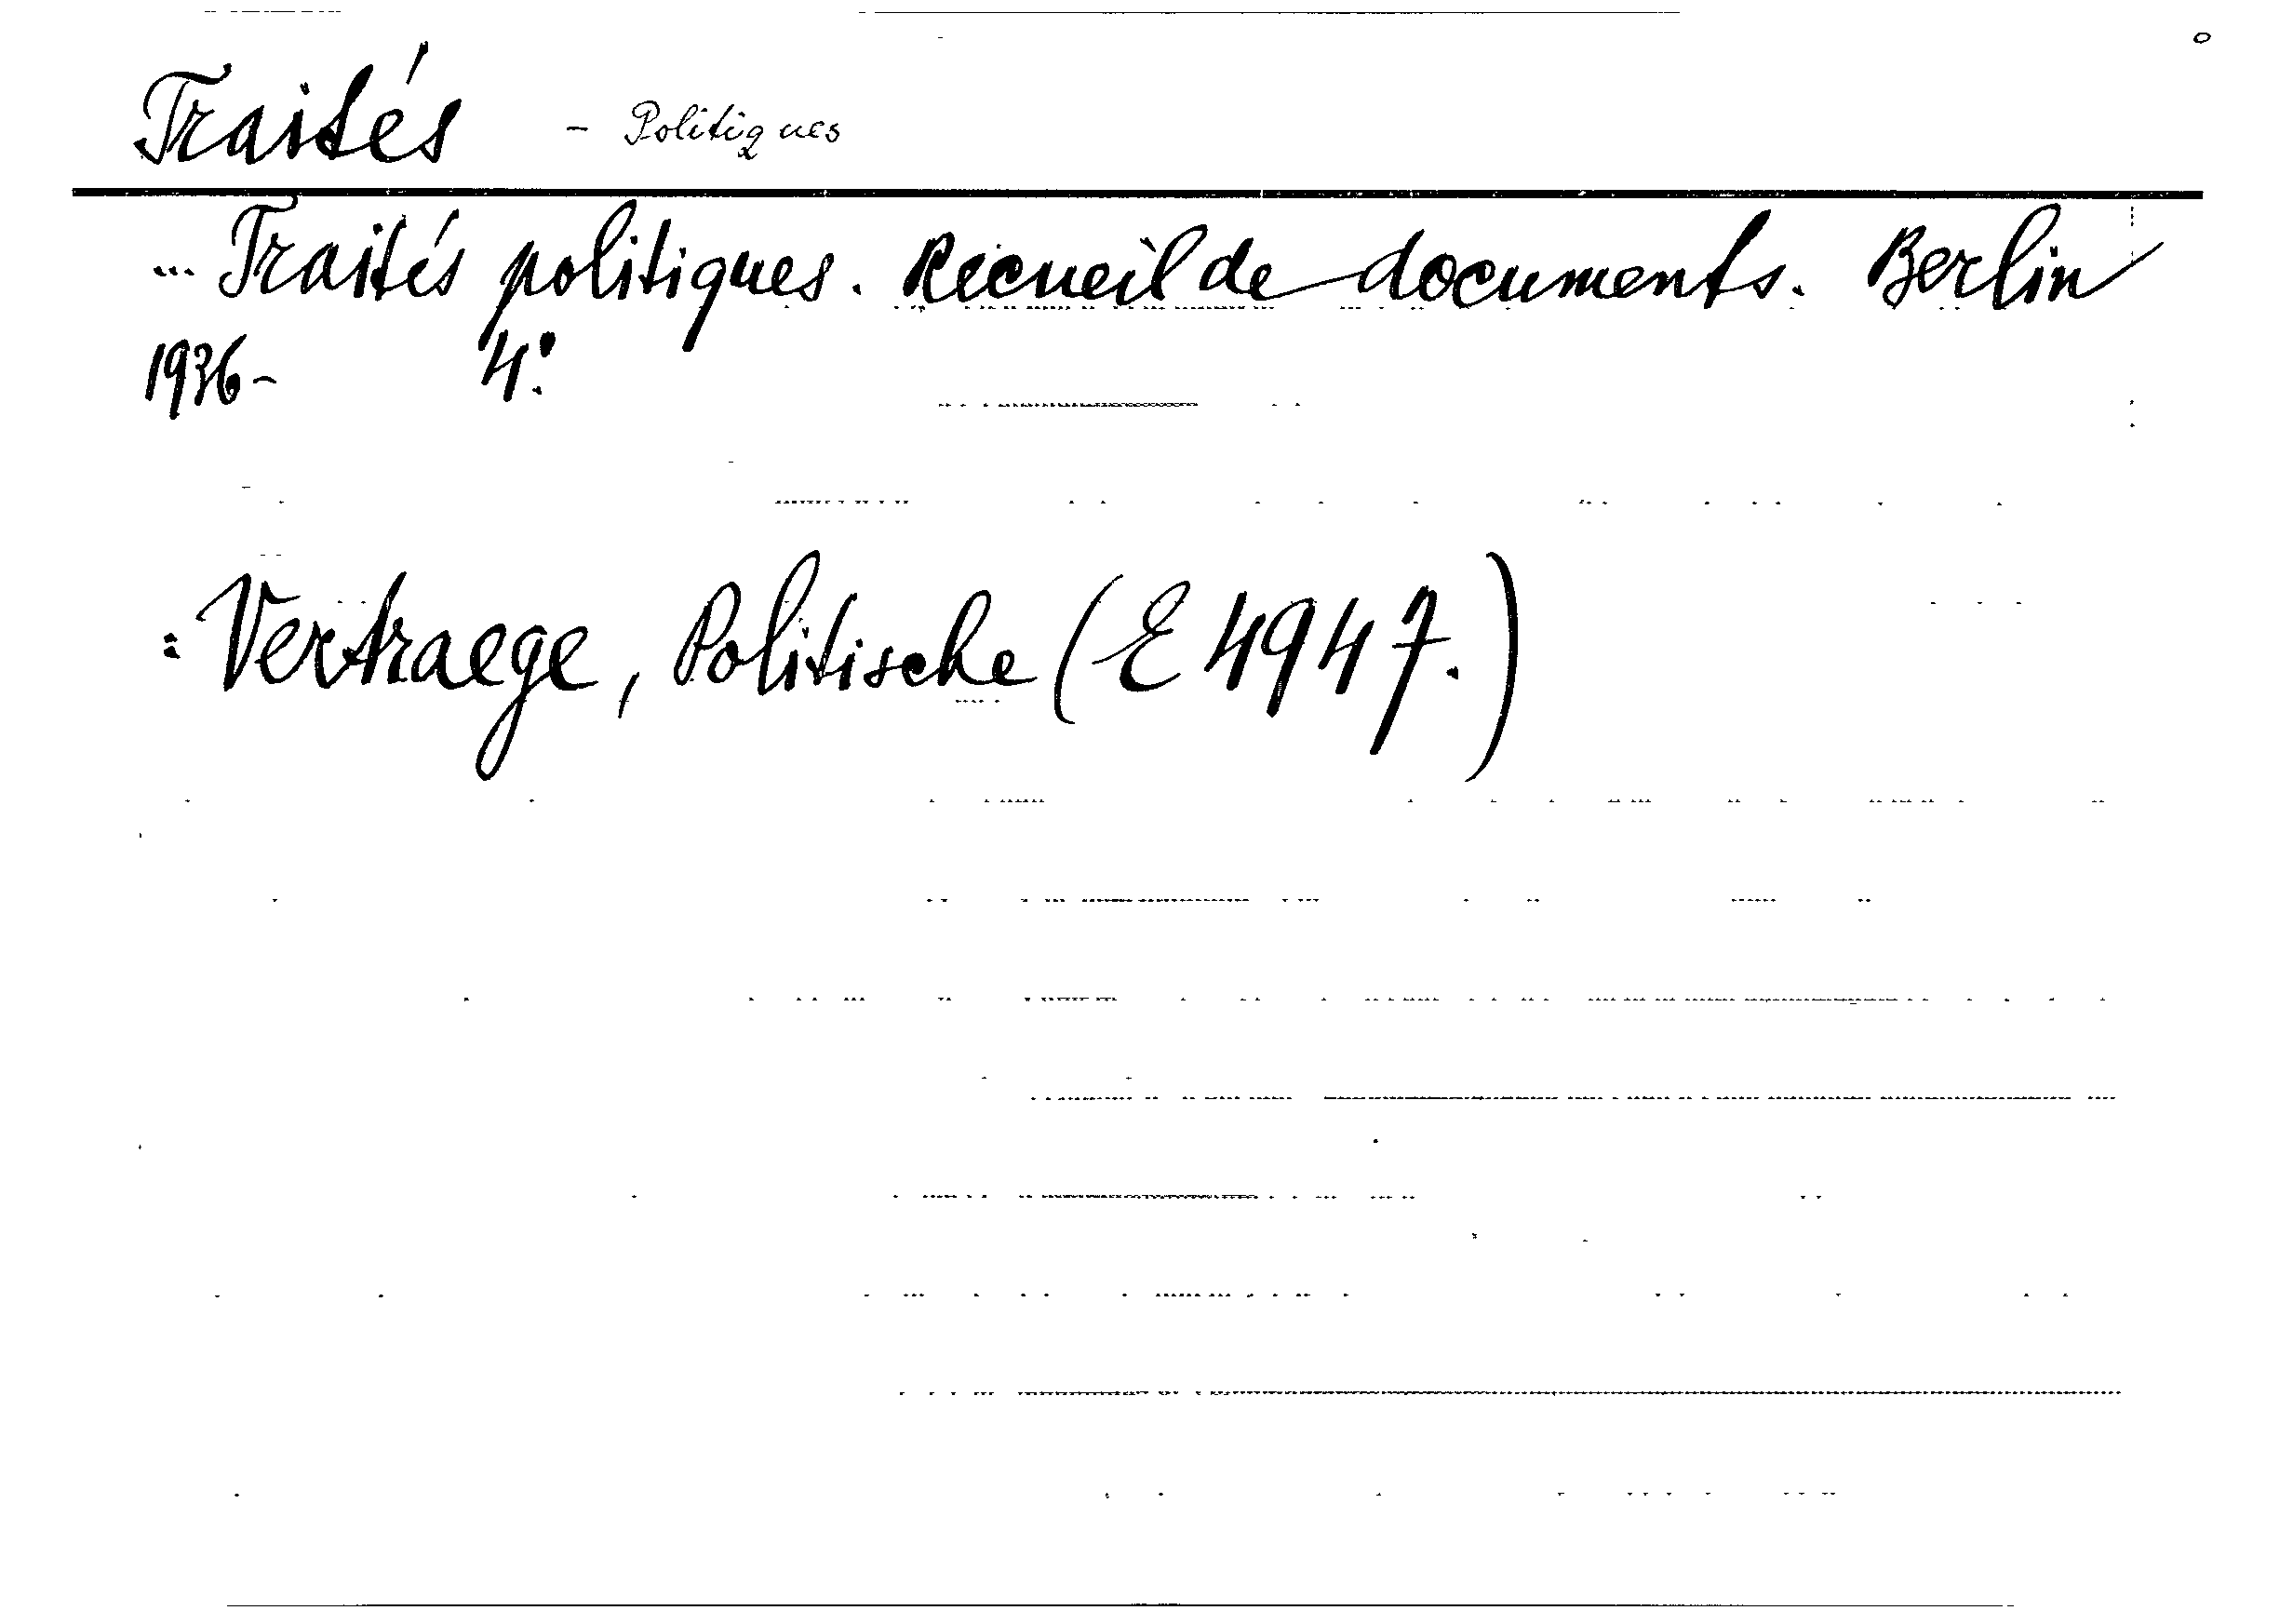 Traités - Politiques
... Traités politiques. Recueil de documents. Berlin
1936- 4°.
= Vertraege, Politische (E 4947.)